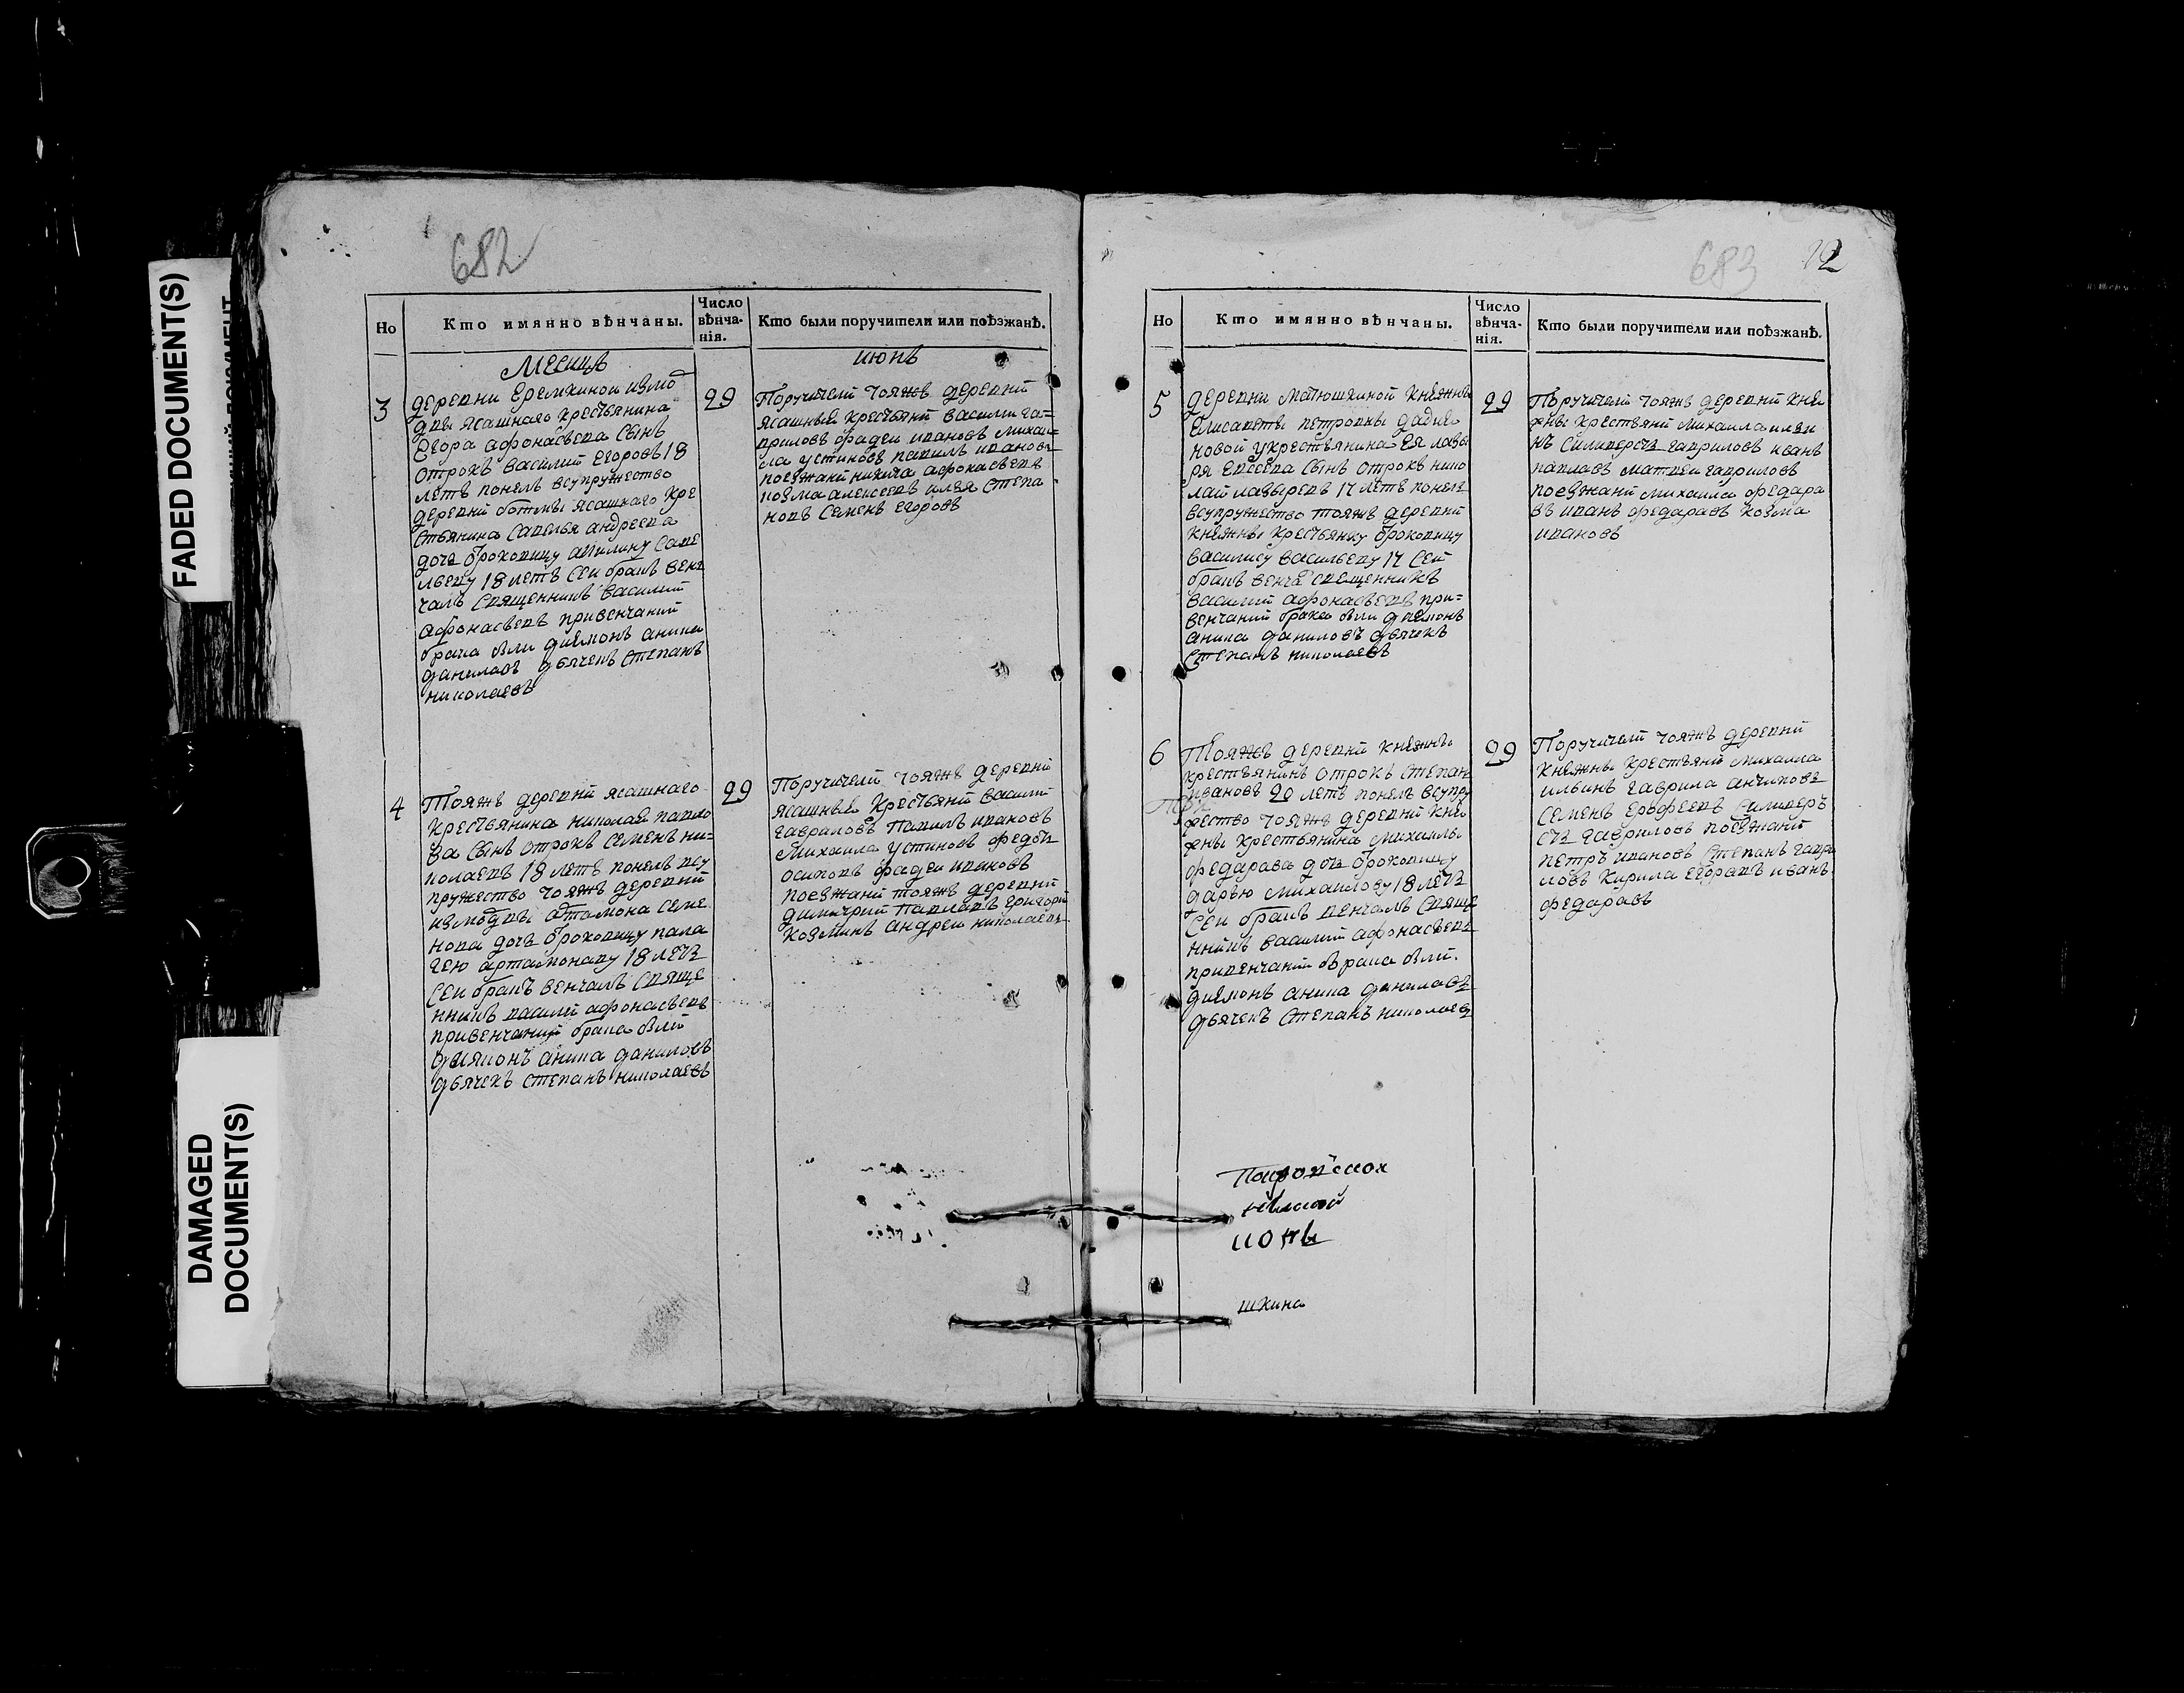 FADED DOCUMENT(S)
DAMAGED
DOCUMENT(S)
682
Но
Кто имянно вѣнчаны.
Число
вѣнча-
нія.
Кто были поручители или поѣзжанѣ.
Месицъ
июнь
3
деревни Еремкиной измо
двы ясашнаго крестьянина
Егора афонасьева сынъ
отрокъ василий Егоровъ 18
летъ понелъ всупружество
деревни ботмы ясашнаго кре
стьянина савелья андреева
дочь броковицу акилину саве
льеву 18 летъ сеи бракъ вен
чалъ священникъ василий
афонасьевъ привенчании
брака были диямонъ аника
даниловъ дьячекъ степанъ
николаевъ
29
Поручители тояжъ деревни
ясашные крестьяни васили га=
вриловъ фадеи ивановъ михаи=
ла устиновъ павилъ ивановъ
поезжани никита афонасьевъ
козма алексеевъ илья степа
новъ семенъ егоровъ
4
Тояжъ деревни ясашнаго
крестьянина николая павло
ва сынъ отрокъ семенъ ни=
колаевъ 18 летъ понелъ всу
пружество тояжъ деревни
измодвы артамона семе
нова дочь броковицу пала
гею артамонаву 18 летъ
сеи бракъ венчалъ свяще
нникъ василий афонасьевъ
привенчании брака были
диямонъ аника даниловъ
дьячекъ степанъ николаевъ
29
Поручители тояжъ деревни
ясашные крестьяни василий
гавриловъ павилъ ивановъ
михаила устиновъ федоръ
осиповъ фадеи ивановъ
поезжани тояжъ деревни
димитрий павлавъ григорий
козминъ андреи николаевъ
683
12
Но
Кто имянно вѣнчаны.
Число
вѣнча-
нія.
Кто были поручители или поѣзжанѣ.
5
деревни матюшкиной княжны
Елисаветы петровны
новой укрестьянина Ея лавы
ря евсеева сынъ отрокъ нико
лай лавыревъ 17 летъ понелъ
всупружество тояжъ деревни
княжны крестьянку броковицу
василису васильеву 17 сей
бракъ венча священникъ
василий афонасьевъ при=
венчании брака были диямонъ
аника даниловъ дьячекъ
степанъ николаевъ
29
Поручители тояжъ деревни кня
жны крестьяни михаила ильи
нъ силиверстъ гавриловъ иванъ
павлавъ матвеи гавриловъ
поезжани михаила федара
въ иванъ федаравъ козма
ивановъ
6
Тояжъ деревни княжны
крестьянинъ отрокъ степанъ
ивановъ 20 летъ понелъ всупру
жество тояжъ деревни кня
жны крестьянина михаилы
федарава дочь броковицу
дарью михаилову 18 летъ
сеи бракъ венчалъ свяще
нникъ василий афонасьевъ
привенчании брака были
диямонъ аника данилавъ
дьячекъ степанъ николаевъ
29
Поручители тояжъ деревни
княжны крестьяни михаила
ильинъ гаврила антиповъ
семенъ ерофеевъ силивер
стъ гавриловъ поезжани
петръ ивановъ степанъ гаври
ловъ кирила егоравъ иванъ
федаравъ
шкина